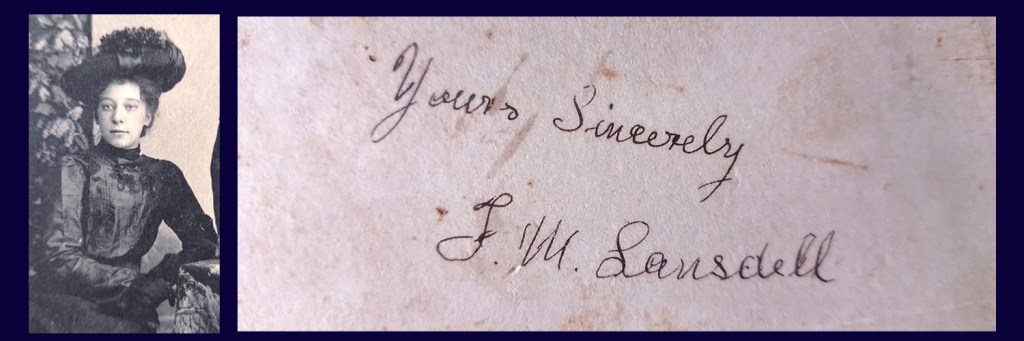 Yours Sincerely
F. M. Lansdell